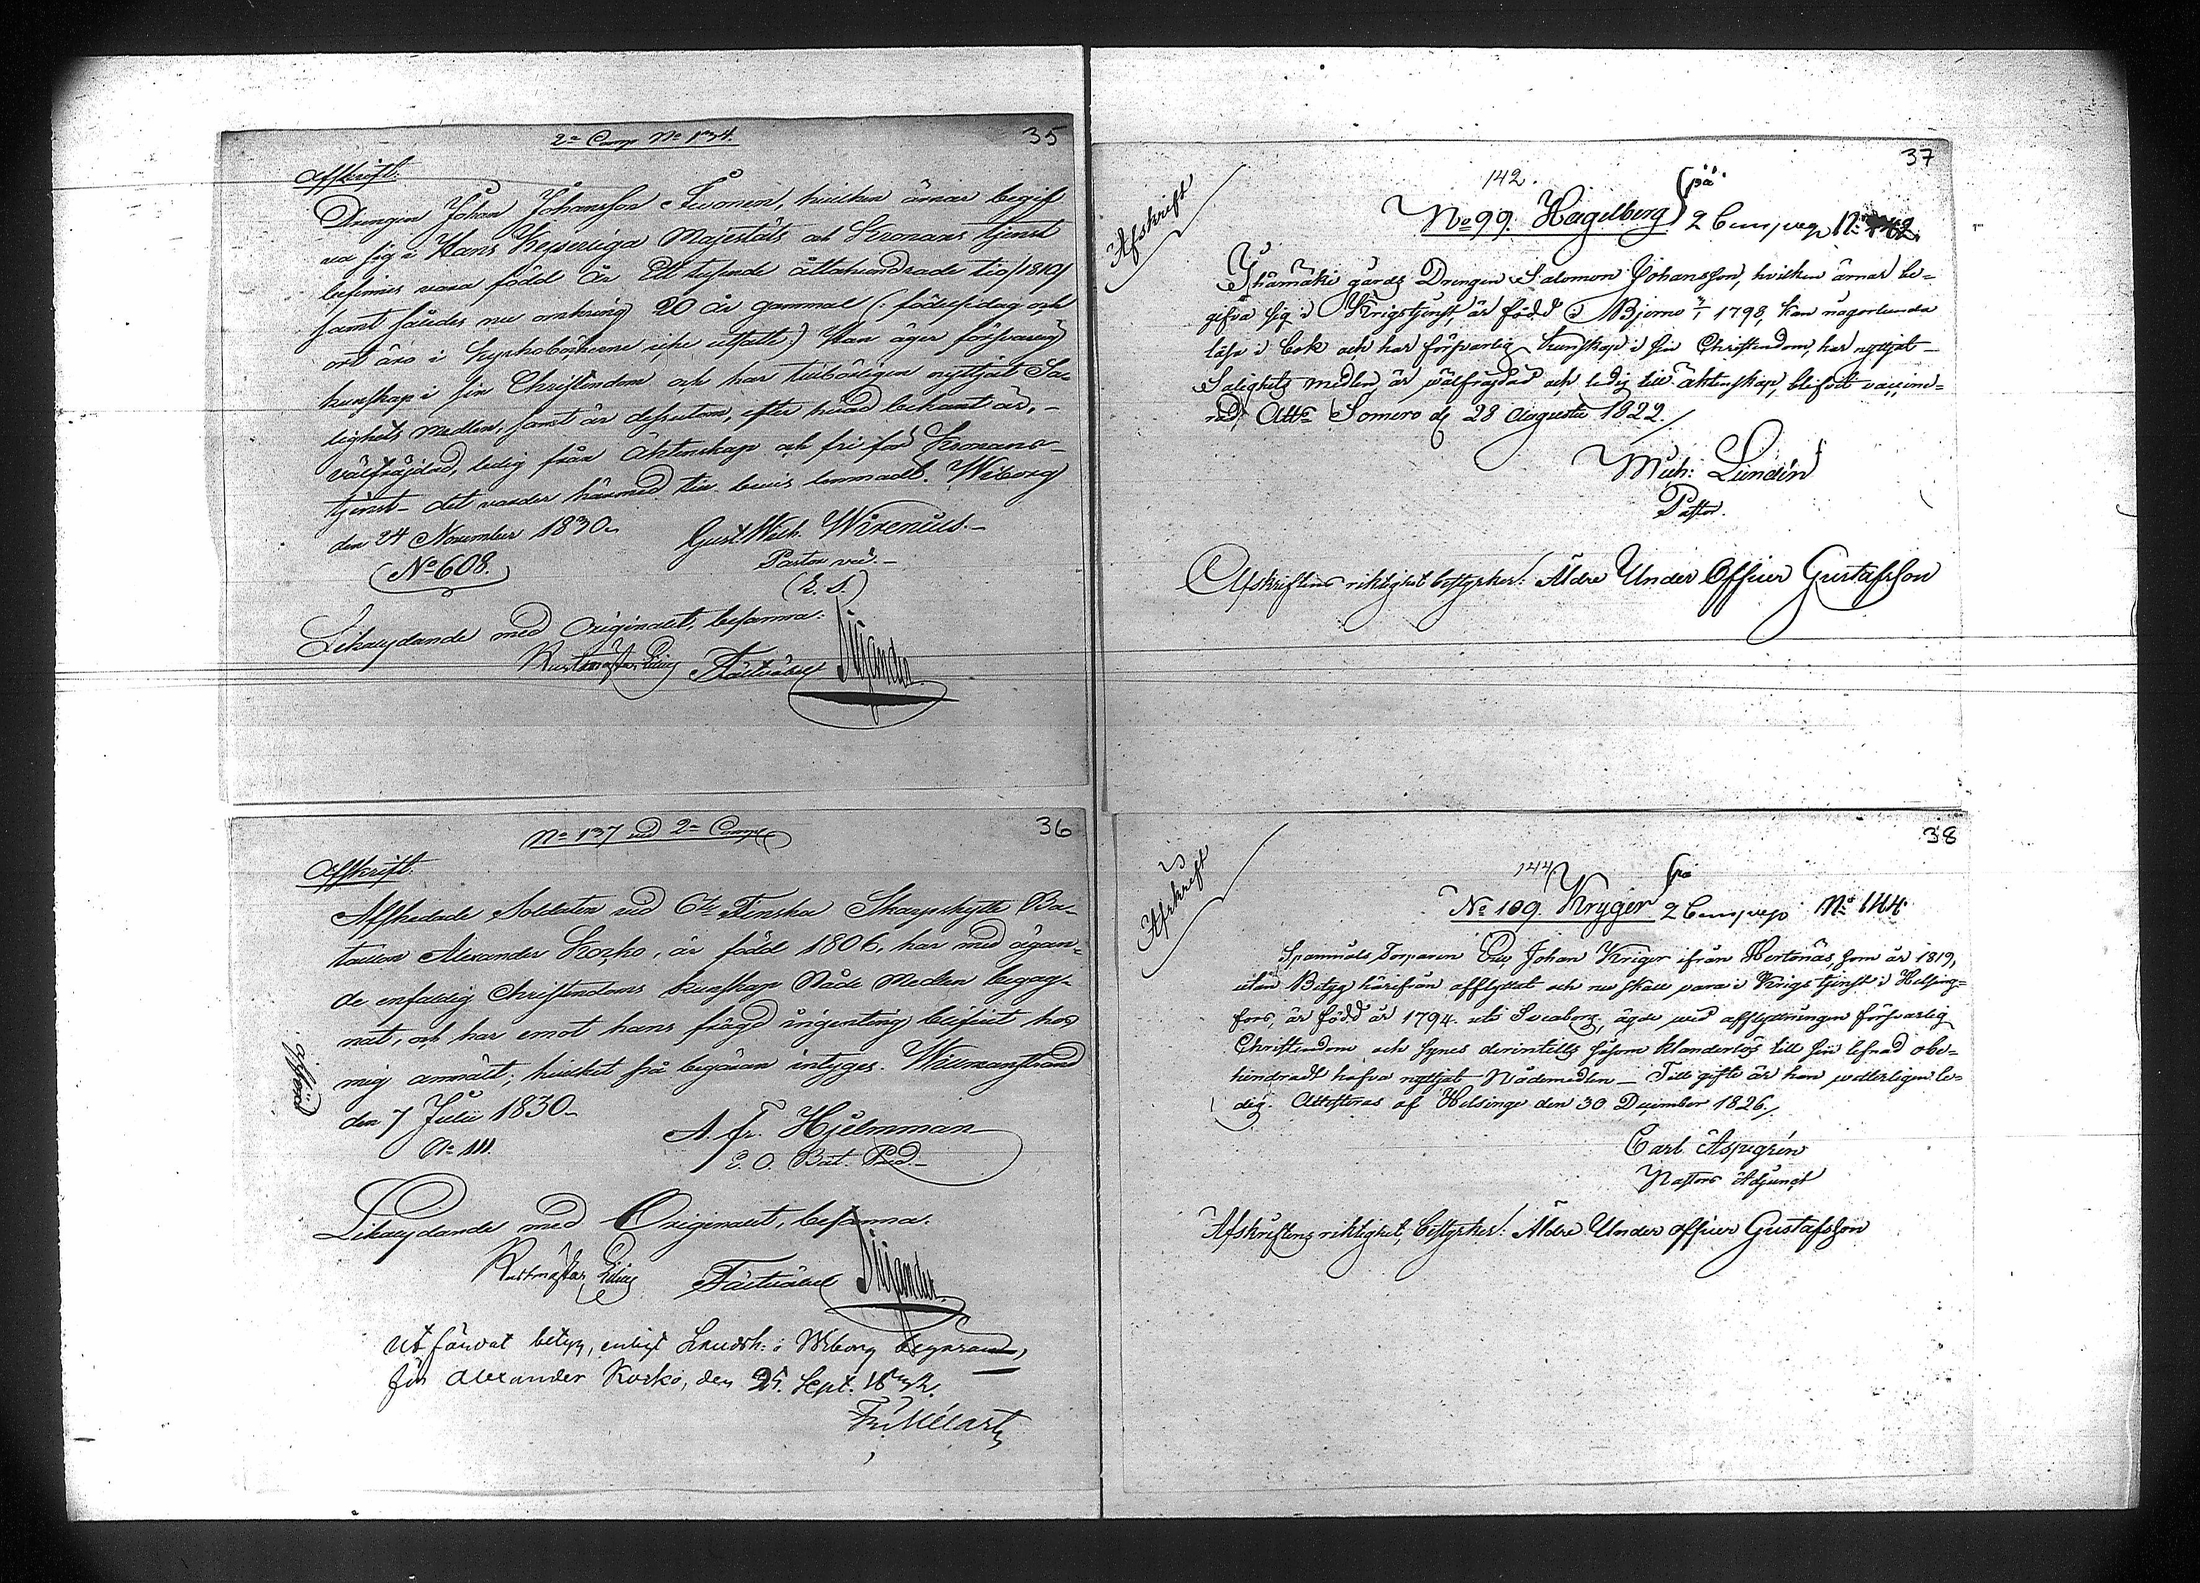 2:a Comp. No 134.
35
Afskrift.
Drengen Johan Johansson Iivonen, hvilken ärnar begif
va sig i Hans Kejserliga Majestäts och Kronans tjenst
befinnes vara född år Ett tusende åttahundrade tio /1810/
samt således nu omkring 20 år gammal (: födelsedag och
ort äro i kyrkoböckerne icke utsatte:) Han äger försvarlig
kunskap i sin Christendom och har tillbörligen nyttjat Sa-
lighets medlen, samt är dessutom, efter hvad bekant är, -
välfräjdad, ledig från Äktenskap och fri för Kronans -
tjenst - det varder härmed till bevis lemnadt. Wiborg
den 24 November 1830.
Gust. Wilh. Wirenius. -
No 608.
Pastor vic. -
(L. S.)
Likalydande med Originalet, besanna:
Rustmästar Fältväbel
36
No 137 vid 2:a Comp.
Afskrift.
Affskedade Soldaten vid 6:te Finska Skarpskytte Ba-
taillon Alexander Korko, är född 1806, har med ägan-
de enfaldig Christendoms kunskap Nåde Medlen begag-
nat, och har emot hans frägd ingenting blifvit hos
mig anmält; hvilket på begäran intygas. Willmanstrand
den 7 Julii 1830.
A. Fr. Hjelmman
No 111.
E. O. Bat. Pred. -
Likalydande med Originalet, besanna:
Rustmästar Fältväbel
Utfärdat betyg, enligt Landsh: i Wiborg begäran,
för Alexander Korko, den 25. Sept.
37
Afskrift
142. på
No 99. Hagelberg 2 Compag No 142.
gårds Drengen Salomon Johansson, hvilken ärnar be-
gifva sig i Krigstjenst, är född i Bjerno 1798, kan någorlunda
läsa i bok och har försvarlig kunskap i sin Christendom, har nyttjat
Salighets medlen, är wälfräjdad och ledig till äktenskap, blifvit vaccine-
rad, Att. Somero d 28 Augusti 1822.
Mich: Lundén
Pastor.
Afskriftens riktighet bestyrker: Äldre Under Officer Gustafsson
38
Afskrift
144 på
No 109. Kryger 2 Compag No 144
Spannmåls Torparen Eric Johan Kriger ifrån Hertonäs, som år 1819,
utan Betyg härifrån afflyttat och nu skall vara i Krigstjenst i Helsing-
fors, är född år 1794. uti Sveaborg, ägde wid afflyttningen försvarlig
Christendom och synes derintills såsom klanderlös till sin lefnad obe-
hindradt hafva nyttjat Nådemedlen - Till gifte är han wetterligen le-
dig. Attesteras af Helsinge den 30 December 1826.
Carl Aspegrén
Pastors Adjunct
Afskriftens riktighet, bestyrker: Äldre Under officer Gustafsson